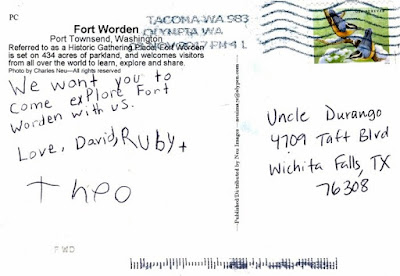 PC
Fort Worden
Port Townsend, Washington
Referred to as a Historic Gathering Place, Fort Worden
is set on 434 acres of parkland, and welcomes visitors
from all over the world to learn, explore and share.
Photo by Charles Neu—All rights reserved
We wont you to
come explore Fort
Worden with us.
Love, David, Ruby, +
Theo
TACOMA WA 983
OLYMPIA WA
PM 4 L
Published/Distributed by Neu Images
Uncle Durango
4709 Taft Blvd
Wichita Falls, TX
76308
FWD